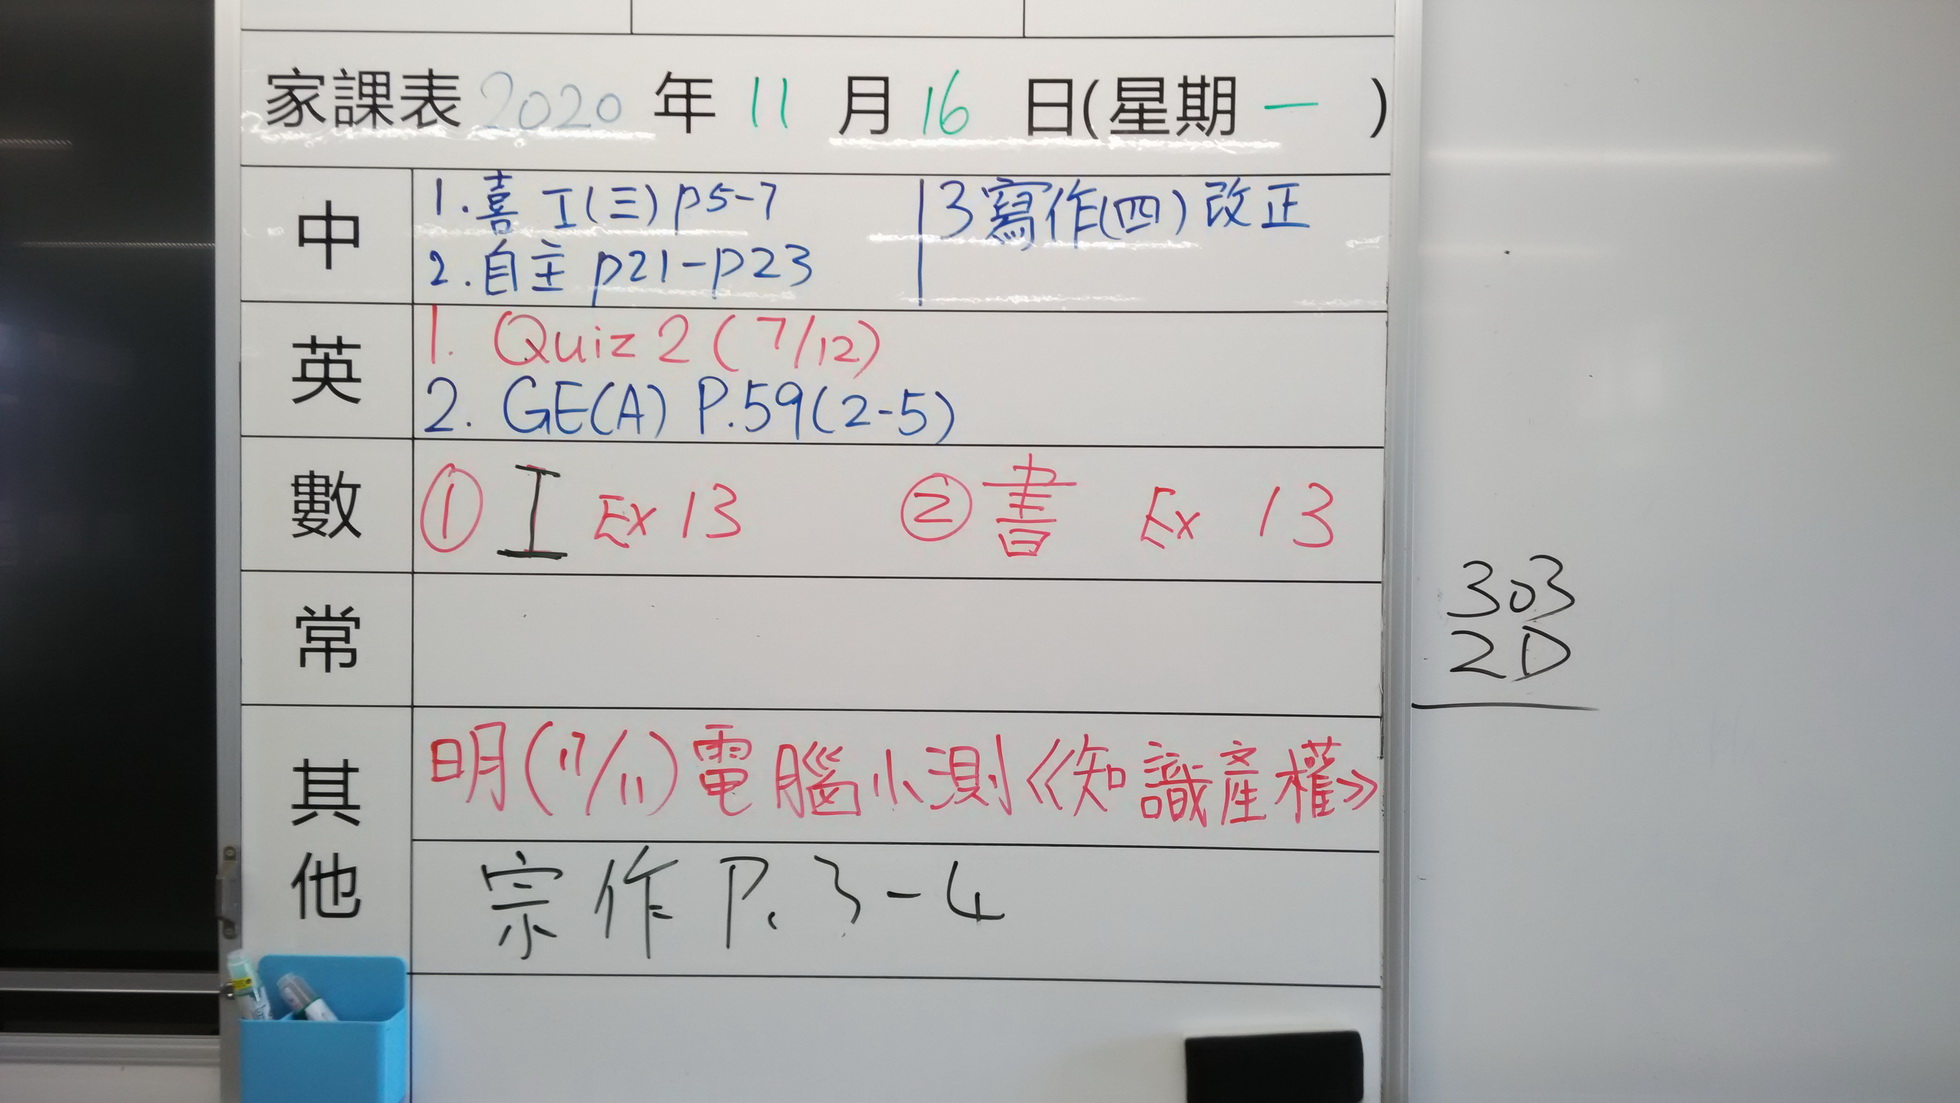 家課表 2020 年 11 月 16 日(星期 一 )
中
1.喜 工(三) p5-7
2.自主 p21-p23
3 寫作(四) 改正
英
1. Quiz 2 (7/12)
2. GE(A) P.59(2-5)
數
① 工 Ex 13 ② 書 Ex 13
常
其他
明(17/11)電腦小測《知識產權》
宗作 P.3-4
303
2D